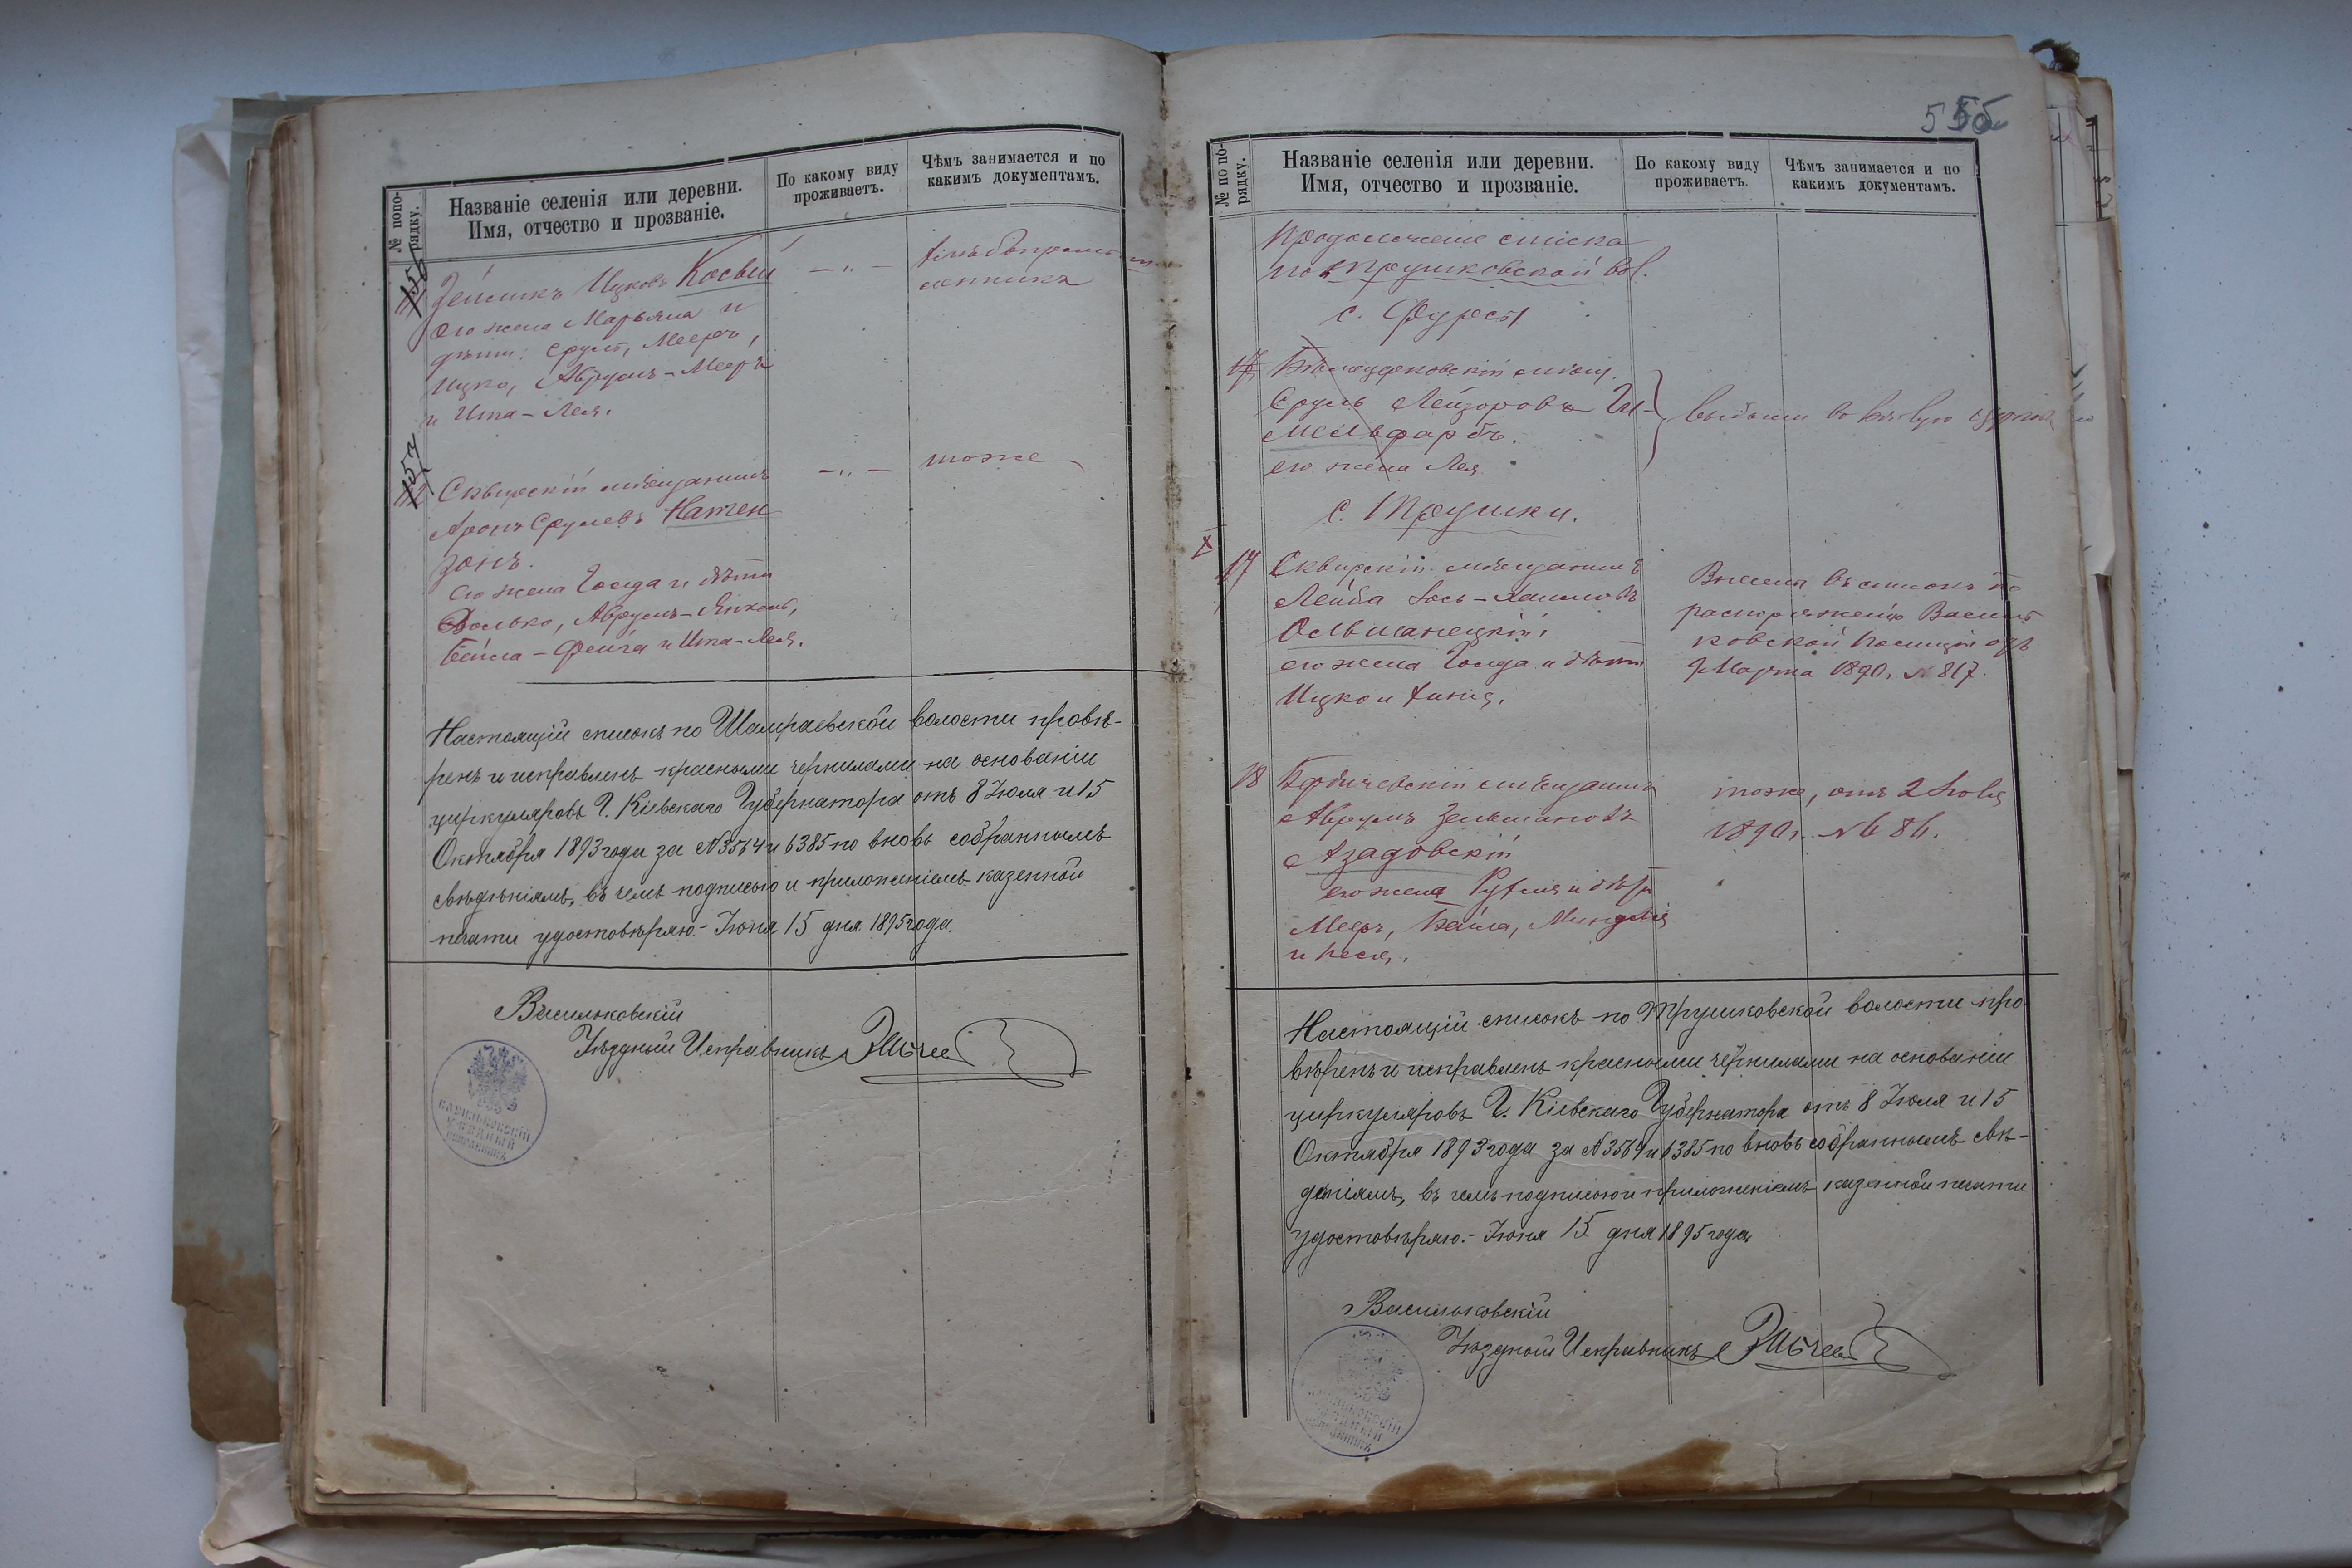 № попо-
рядку.
Названіе селенія или деревни.
Имя, отчество и прозваніе.
По какому виду
проживаетъ.
Чѣмъ занимается и по
какимъ документамъ.
156
Зейликъ Ицковъ Косвій
его жена Марьяна и
дѣти: Сруль, Мееръ,
Ицко, Аврумъ-Мееръ
и Ита-Лея.
— „ —
157
Сквирскій мѣщанинъ
Аронъ Срулевъ Натен
зонъ.
его жена Голда и дѣти
Волько, Аврумъ-Янкель,
Бейла-Фейга и Ита-Лея.
— „ —
тоже
Настоящій списокъ по Шамраевской волости провѣ-
ренъ и исправленъ красными чернилами на основаніи
циркуляровъ Г. Кіевскаго Губернатора отъ 8 Іюля и 15
Октября 1893 года за №3564 и 6385 по вновь собраннымъ
свѣдѣніямъ, въ чемъ подписью и приложеніемъ казенной
печати удостовѣряю.- Іюня 15 дня 1895 года.
Васильковскій
Уѣздный Исправникъ
ВАСИЛЬКОВСКІЙ
УѢЗДНЫЙ
ИСПРАВНИКЪ
555
№ по по-
рядку.
Названіе селенія или деревни.
Имя, отчество и прозваніе.
По какому виду
проживаетъ.
Чѣмъ занимается и по
какимъ документамъ.
Продолженіе списка
по Трушковской вол.
с. Фурсы
Бѣлоцерковскій мѣщ.
Сруль Лейзоровъ Ги-
мельфарбъ.
его жена Лея
выбыли въ
с. Трушки.
17
Сквирскій мѣщанинъ
Лейба Іось-Хаимовъ
Ольшанецкій,
его жена Голда и дѣти
Ицко и Хання.
Внесена въ списокъ по
распоряженію Василь
ковской Полиціи отъ
7 Марта 1890г. №817.
18
Бердичевскій мѣщанинъ
Аврумъ Зельмановъ
Азадовскій
его жена Рухля и дѣти
Мееръ, Бейла, Миндля
и Песя.
тоже, отъ 2
1890г. №86.
Настоящій списокъ по Трушковской волости про
вѣренъ и исправленъ красными чернилами на основаніи
циркуляровъ Г. Кіевскаго Губернатора отъ 8 Іюля и 15
Октября 1893 года за №3564 и 6385 по вновь собраннымъ свѣ-
деніямъ, въ чемъ подписью и приложеніемъ казенной печати
удостовѣряю.- Іюня 15 дня 1895 года
Васильковскій
Уѣздный Исправникъ